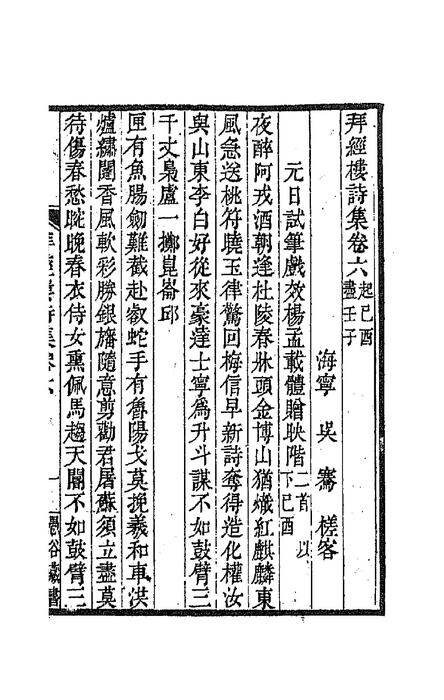 拜經樓詩集卷六起己酉盡壬子
海寧 吳騫 槎客
元日試筆戲效楊孟載體贈映階二首 以下己酉
夜醉阿戎酒朝逢杜陵春牀頭金博山猶熾紅麒麟東
風急送桃符曉玉律驚回梅信早新詩奪得造化權汝
與山東李白好從來豪達士寧爲升斗謀不如鼓臂三
千丈梟盧一擲崑崙邱
匣有魚腸劒難截赴壑蛇手有魯陽戈莫挽羲和車洪
爐繡闥香風軟彩勝銀旛隨意剪勸君屠蘇須立盡莫
待傷春愁晼晚春衣侍女熏佩馬趨天闕不如鼓臂三
拜經樓詩集卷六 一 愚谷叢書